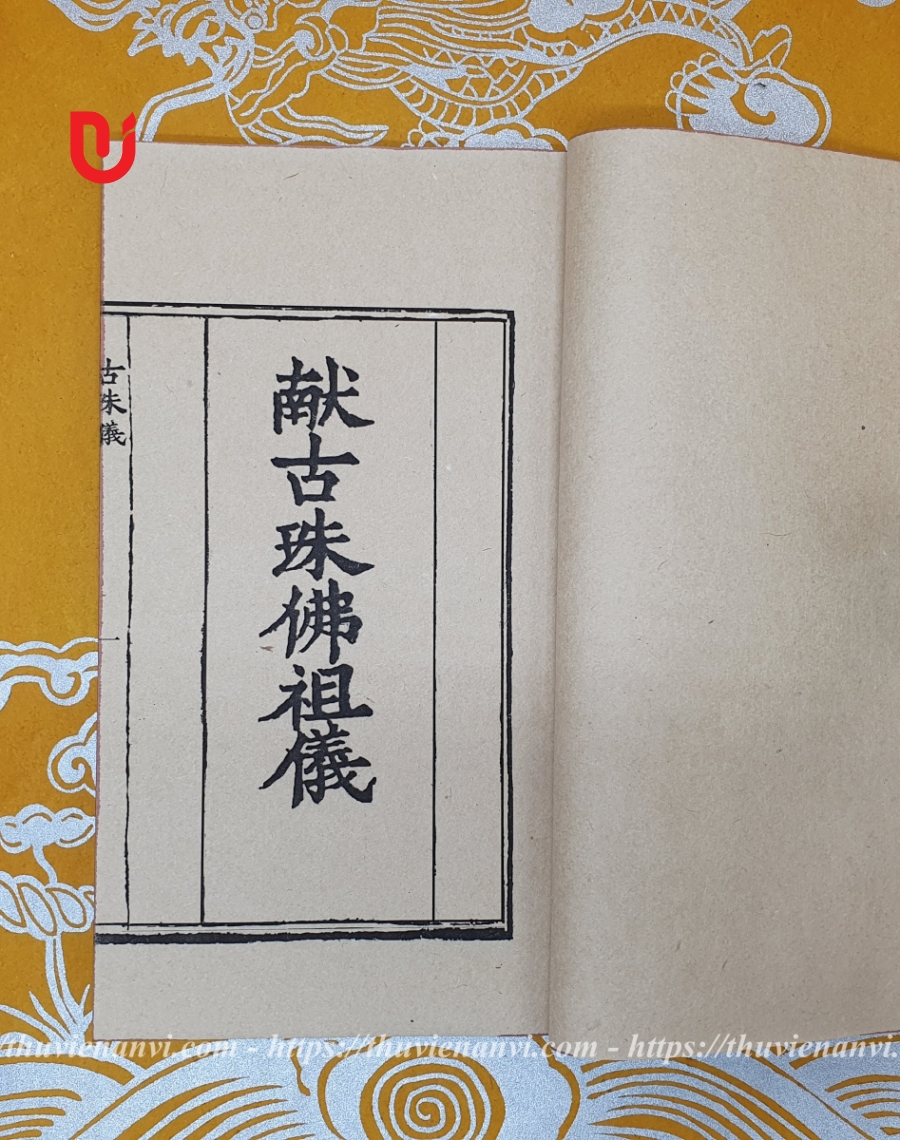 献古珠佛祖儀
古珠儀
thuvienanvi.com - https://thuvienanvi.com - https://thuvienanvi.